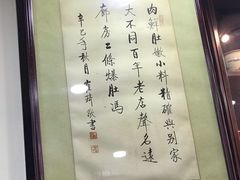 肉鮮肚嫩小料精確與别家
大不同百年老店聲名遠
廊房二條爆肚馮
辛巳年秋月
敬書